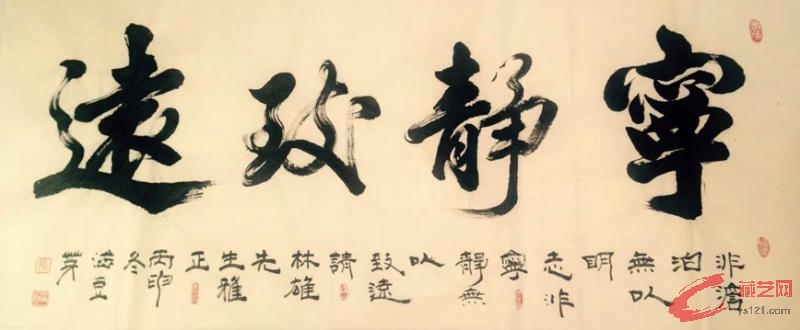 寧靜致遠
非澹
泊
無以
明
志非
寧
靜無
以
致遠
請
林雄
先
生雅
正
丙申
冬
豆
芽
藏艺网
ys121.com